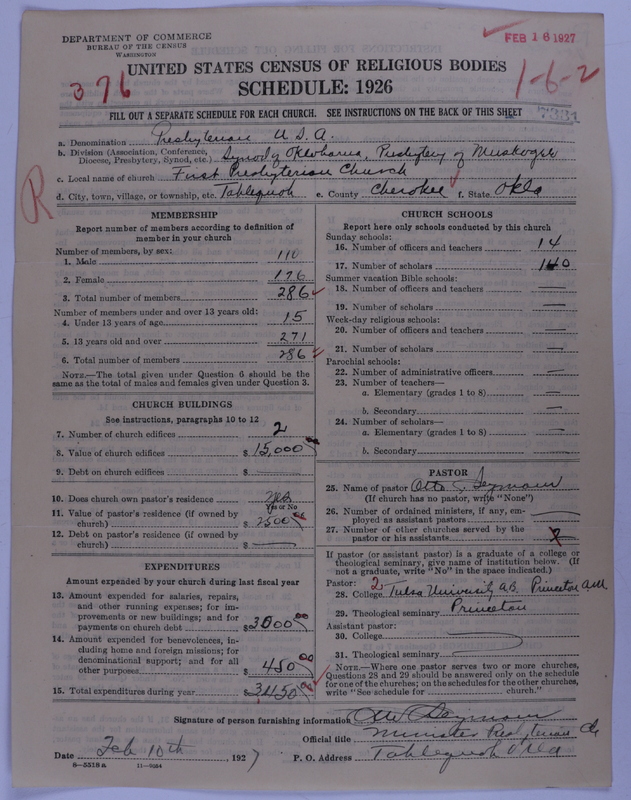 DEPARTMENT OF COMMERCE
BUREAU OF THE CENSUS
WASHINGTON
FEB 16 1927
376
1-6-2
UNITED STATES CENSUS OF RELIGIOUS BODIES
SCHEDULE: 1926
FILL OUT A SEPARATE SCHEDULE FOR EACH CHURCH. SEE INSTRUCTIONS ON THE BACK OF THIS SHEET
7331
a. Denomination Presbyterian U.S.A.
b. Division (Association, Conference, Diocese, Presbytery, Synod, etc.) Synod of Oklahoma, Presbytery of Muskogee
c. Local name of church First Presbyterian Church
R
d. City, town, village, or township, etc. Tahlequah e. County Cherokee f. State Okla
MEMBERSHIP
Report number of members according to definition of
member in your church
Number of members, by sex:
1. Male 110
2. Female 176
3. Total number of members 286
Number of members under and over 13 years old:
4. Under 13 years of age 15
5. 13 years old and over 271
6. Total number of members 286
NOTE.—The total given under Question 6 should be the
same as the total of males and females given under Question 3.
CHURCH BUILDINGS
See instructions, paragraphs 10 to 12
7. Number of church edifices 2
8. Value of church edifices $15,000 00
9. Debt on church edifices $
10. Does church own pastor's residence Yes
Yes or No
11. Value of pastor's residence (if owned by
church) $2500 00
12. Debt on pastor's residence (if owned by
church) $
EXPENDITURES
Amount expended by your church during last fiscal year
13. Amount expended for salaries, repairs,
and other running expenses; for im-
provements or new buildings; and for
payments on church debt $3000 00
14. Amount expended for benevolences, in-
cluding home and foreign missions; for
denominational support; and for all
other purposes $450 00
15. Total expenditures during year $3450
CHURCH SCHOOLS
Report here only schools conducted by this church
Sunday schools:
16. Number of officers and teachers 14
17. Number of scholars 140
Summer vacation Bible schools:
18. Number of officers and teachers —
19. Number of scholars —
Week-day religious schools:
20. Number of officers and teachers —
21. Number of scholars —
Parochial schools:
22. Number of administrative officers —
23. Number of teachers—
a. Elementary (grades 1 to 8) —
b. Secondary —
24. Number of scholars—
a. Elementary (grades 1 to 8) —
b. Secondary —
PASTOR
25. Name of pastor Otto Seymour
(If church has no pastor, write "None")
26. Number of ordained ministers, if any, em-
ployed as assistant pastors
27. Number of other churches served by the
pastor or his assistants
If pastor (or assistant pastor) is a graduate of a college or
theological seminary, give name of institution below. (If
not a graduate, write "No" in the space indicated.)
Pastor: 2
28. College Tulsa University A.B. Princeton A.M.
29. Theological seminary Princeton
Assistant pastor:
30. College
31. Theological seminary
NOTE.—Where one pastor serves two or more churches,
Questions 28 and 29 should be answered only on the schedule
for one of the churches; on the schedules for the other churches,
write "See schedule for church."
Signature of person furnishing information Otto Seymour
Official title Minister Presbyterian Ch
Date Feb 10th, 1927 P. O. Address Tahlequah Okla
8—5518 a 11—9354